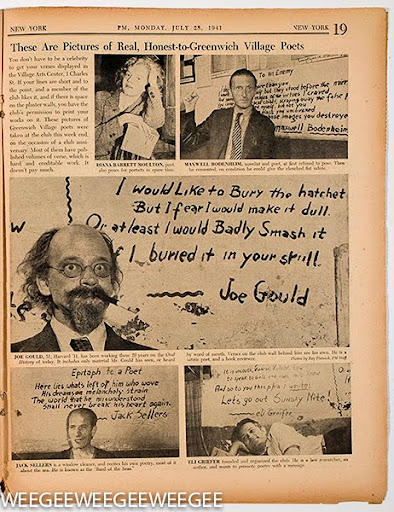 NEW YORK
PM, MONDAY, JULY 28, 1941
NEW YORK 19
These Are Pictures of Real, Honest-to-Greenwich Village Poets
You don't have to be a celebrity
to get your verses displayed in
the Village Arts Center, 1 Charles
St. If your lines are short and to
the point, and a member of the
club likes it, and if there is space
on the plaster wall, you have the
club's permission to print your
words on it. These pictures of
Greenwich Village poets were
taken at the club this week end,
on the occasion of a club anni-
versary. Most of them have pub-
lished volumes of verse, which is
hard and creditable work. It
doesn't pay much.
To an Enemy
they stood before the mirror
images you destroy
Maxwell Bodenheim
DIANA BARRETT MOULTON, poet,
also poses for portraits in spare time.
MAXWELL BODENHEIM, novelist and poet, at first refused to pose. Then
he consented, on condition he could give the clenched fist salute.
I would Like to Bury the hatchet
But I fear I would make it dull.
Or at least I would Badly Smash it
If I buried it in your skull.
Joe Gould
JOE GOULD, 51, Harvard '11, has been working these 20 years on the Oral
History of today. It includes only material Mr. Gould has seen, or heard
by word of mouth. Verses on the club wall behind him are his own. He is a
satiric poet, and a book reviewer.
Epitaph to a Poet
Here lies what's left of him who wove
His dreams on melancholy strain
The world that he misunderstood
Shall never break his heart again.
Jack Sellers
And so to you this plea I write:
Let's go out Sunday Nite!
Eli Greifer
JACK SELLERS is a window cleaner, and recites his own poetry, most of it
about the sea. He is known as the "Bard of the Seas."
ELI GREIFER founded and organized the club. He is a law researcher, an
author, and wants to promote poetry with a message.
WEEGEEWEEGEEWEEGEE